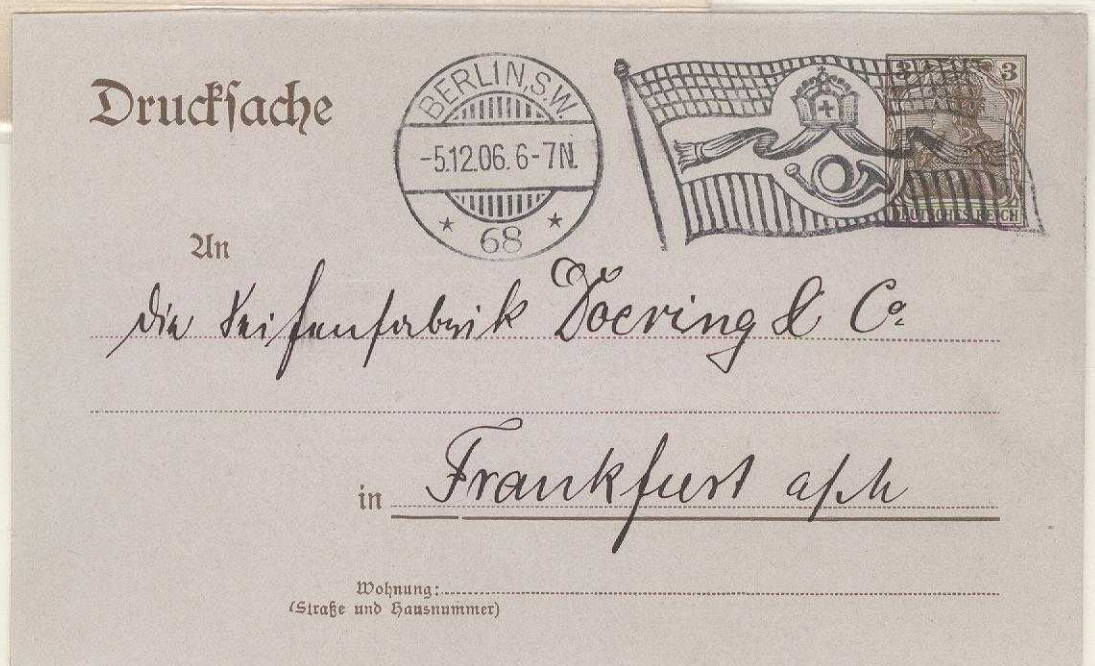 Drucksache
BERLIN, S.W.
-5.12.06. 6-7N.
* 68 *
3 3
DEUTSCHES REICH
An
die Seifenfabrik Doering & Co.
in Frankfurt a/M
Wohnung:
(Straße und Hausnummer)